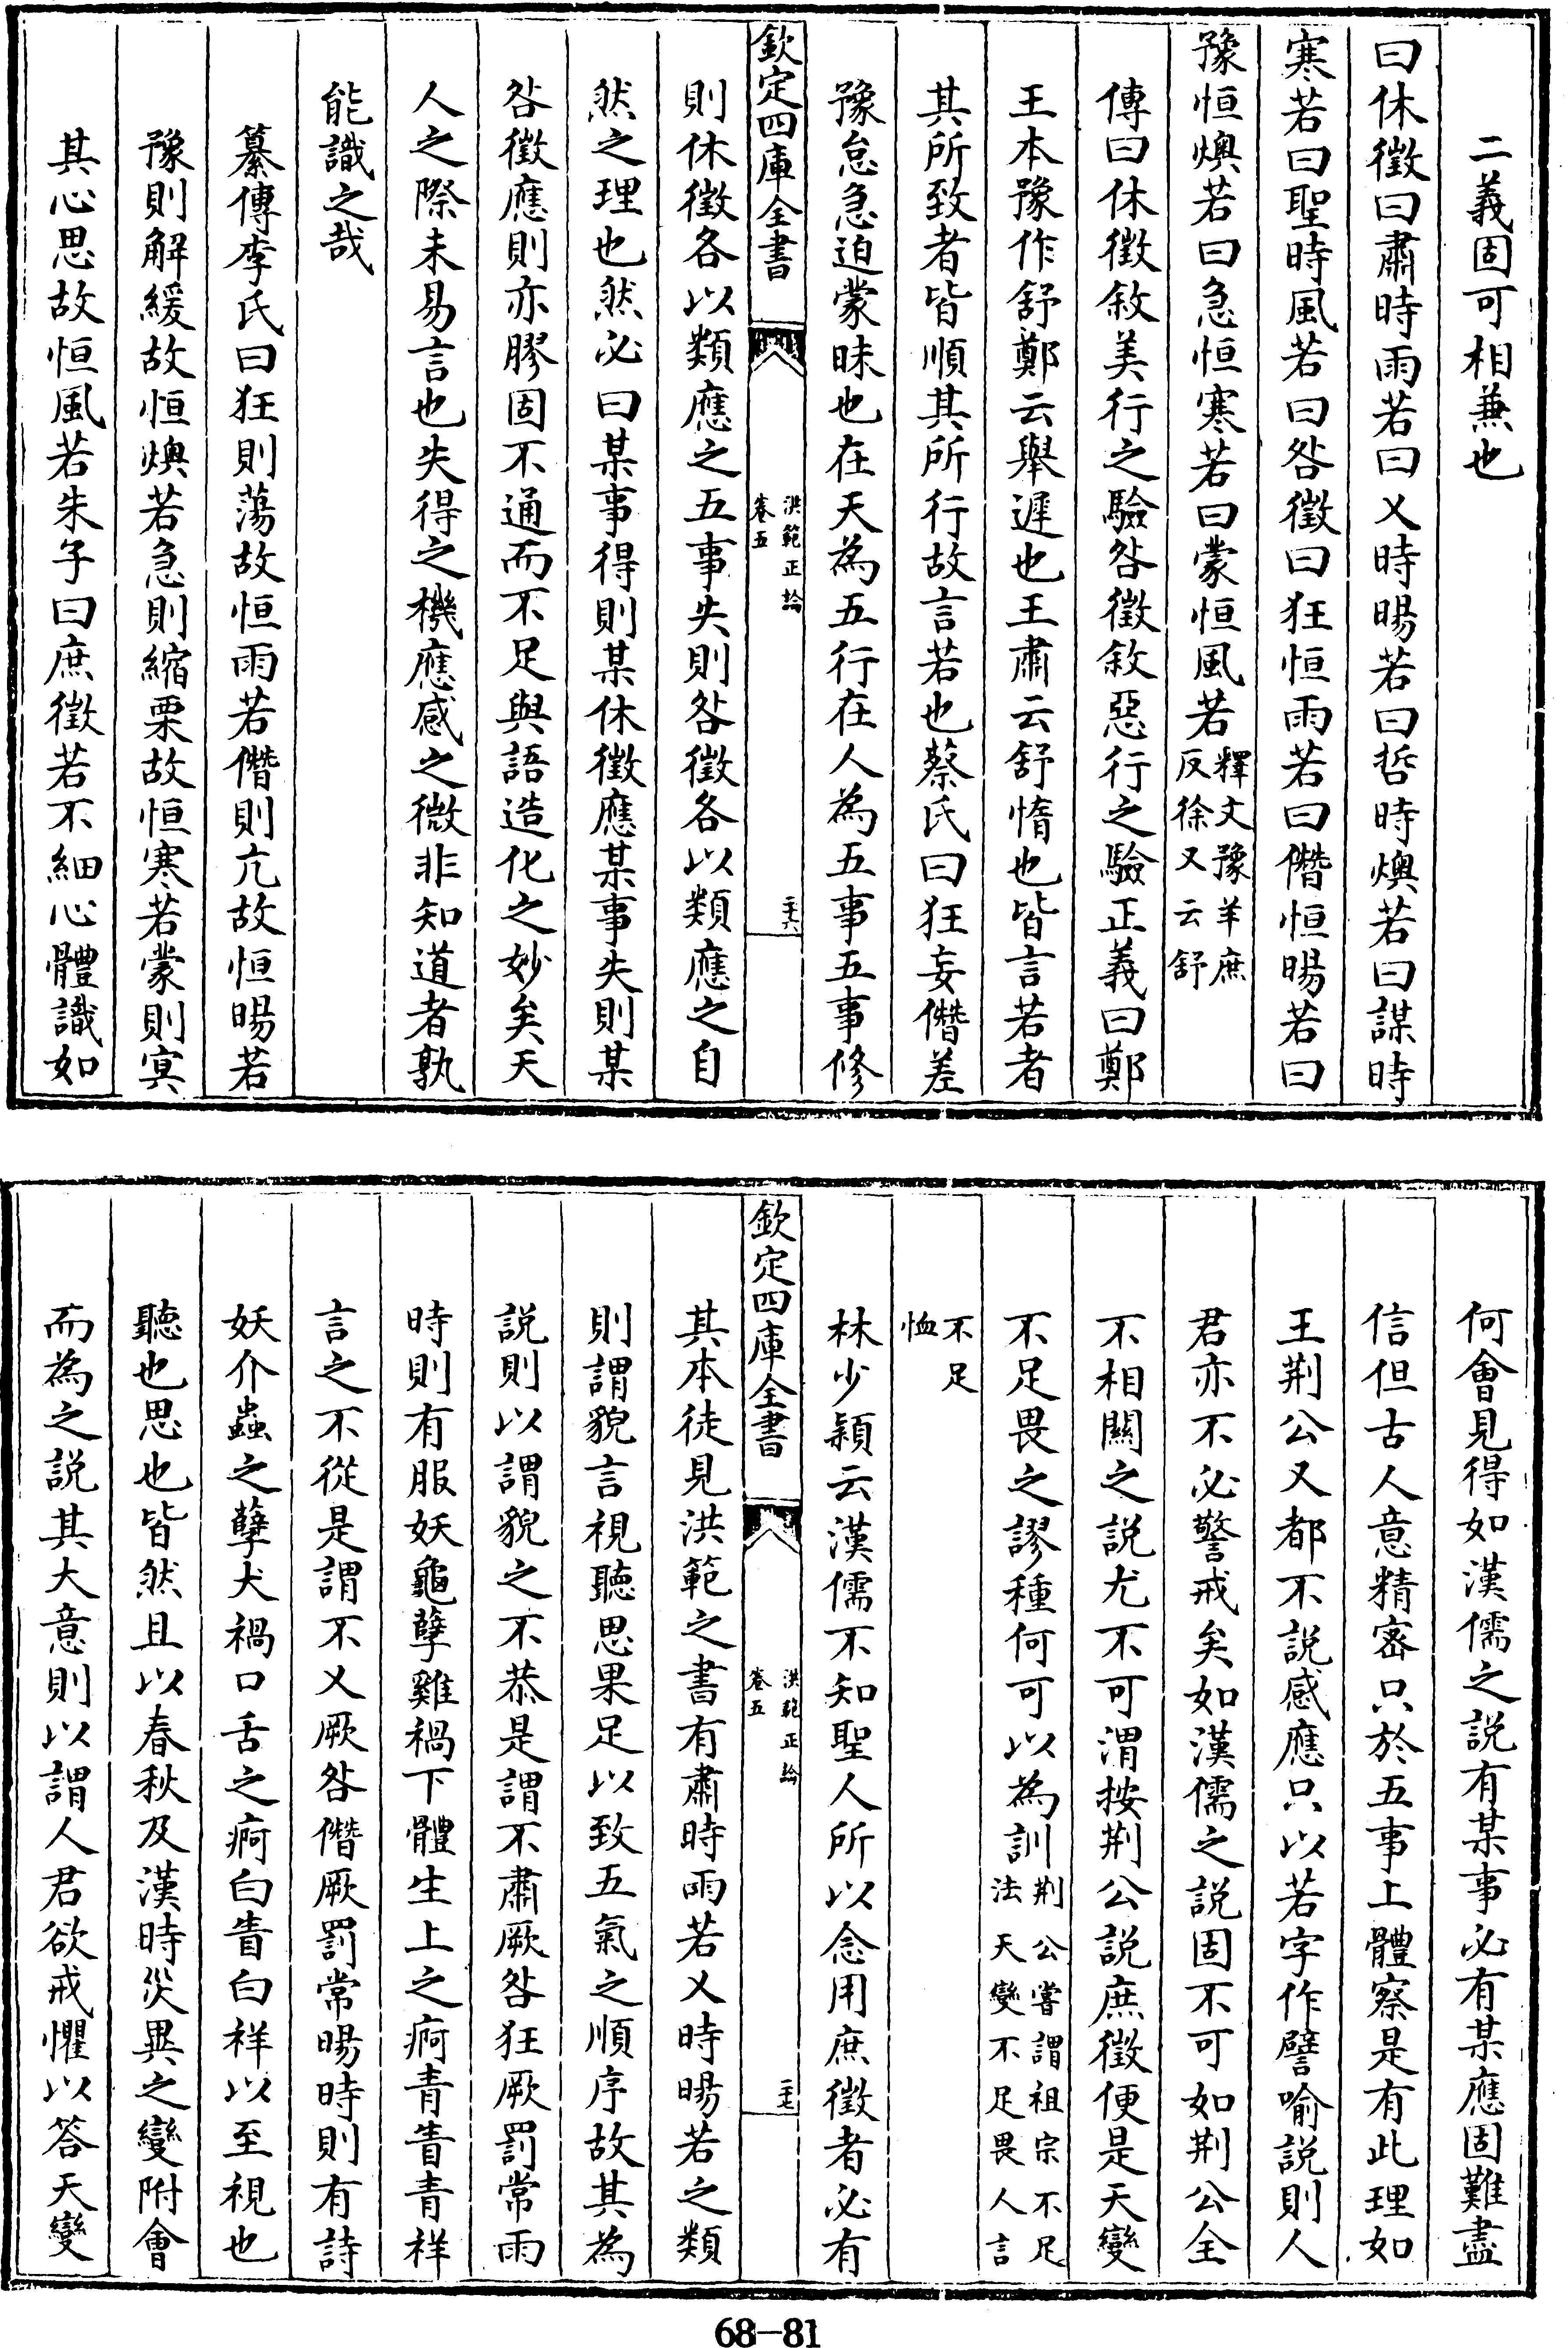 二義固可相兼也
曰休徵曰肅時雨若曰乂時暘若曰哲時燠若曰謀時
寒若曰聖時風若曰咎徵曰狂恒雨若曰僭恒暘若曰
豫恒燠若曰急恒寒若曰蒙恒風若釋文豫羊庶
反徐又云舒
傳曰休徵敘美行之驗咎徵敘惡行之驗正義曰鄭
王本豫作舒鄭云舉遲也王肅云舒惰也皆言若者
其所致者皆順其所行故言若也蔡氏曰狂妄僭差
豫怠急迫蒙昧也在天為五行在人為五事五事修
欽定四庫全書
洪範正論
卷五
二六
則休徵各以類應之五事失則咎徵各以類應之自
然之理也然必曰某事得則某休徵應某事失則某
咎徵應則亦膠固不通而不足與語造化之妙矣天
人之際未易言也失得之機應感之微非知道者孰
能識之哉
纂傳李氏曰狂則蕩故恒雨若僭則亢故恒暘若
豫則解緩故恒燠若急則縮栗故恒寒若蒙則冥
其心思故恒風若朱子曰庶徵若不細心體識如
何會見得如漢儒之説有某事必有某應固難盡
信但古人意精密只於五事上體察是有此理如
王荆公又都不説感應只以若字作譬喻説則人
君亦不必警戒矣如漢儒之説固不可如荆公全
不相關之説尤不可渭按荆公説庶徵便是天變
不足畏之謬種何可以為訓荆公嘗謂祖宗不足
法天變不足畏人言
不足
恤
林少穎云漢儒不知聖人所以念用庶徵者必有
欽定四庫全書
洪範正論
卷五
二七
其本徒見洪範之書有肅時雨若乂時暘若之類
則謂貌言視聽思果足以致五氣之順序故其為
説則以謂貌之不恭是謂不肅厥咎狂厥罰常雨
時則有服妖龜孽雞禍下體生上之痾青眚青祥
言之不從是謂不乂厥咎僭厥罰常暘時則有詩
妖介蟲之孽犬禍口舌之痾白眚白祥以至視也
聽也思也皆然且以春秋及漢時災異之變附會
而為之説其大意則以謂人君欲戒懼以答天變
68-81